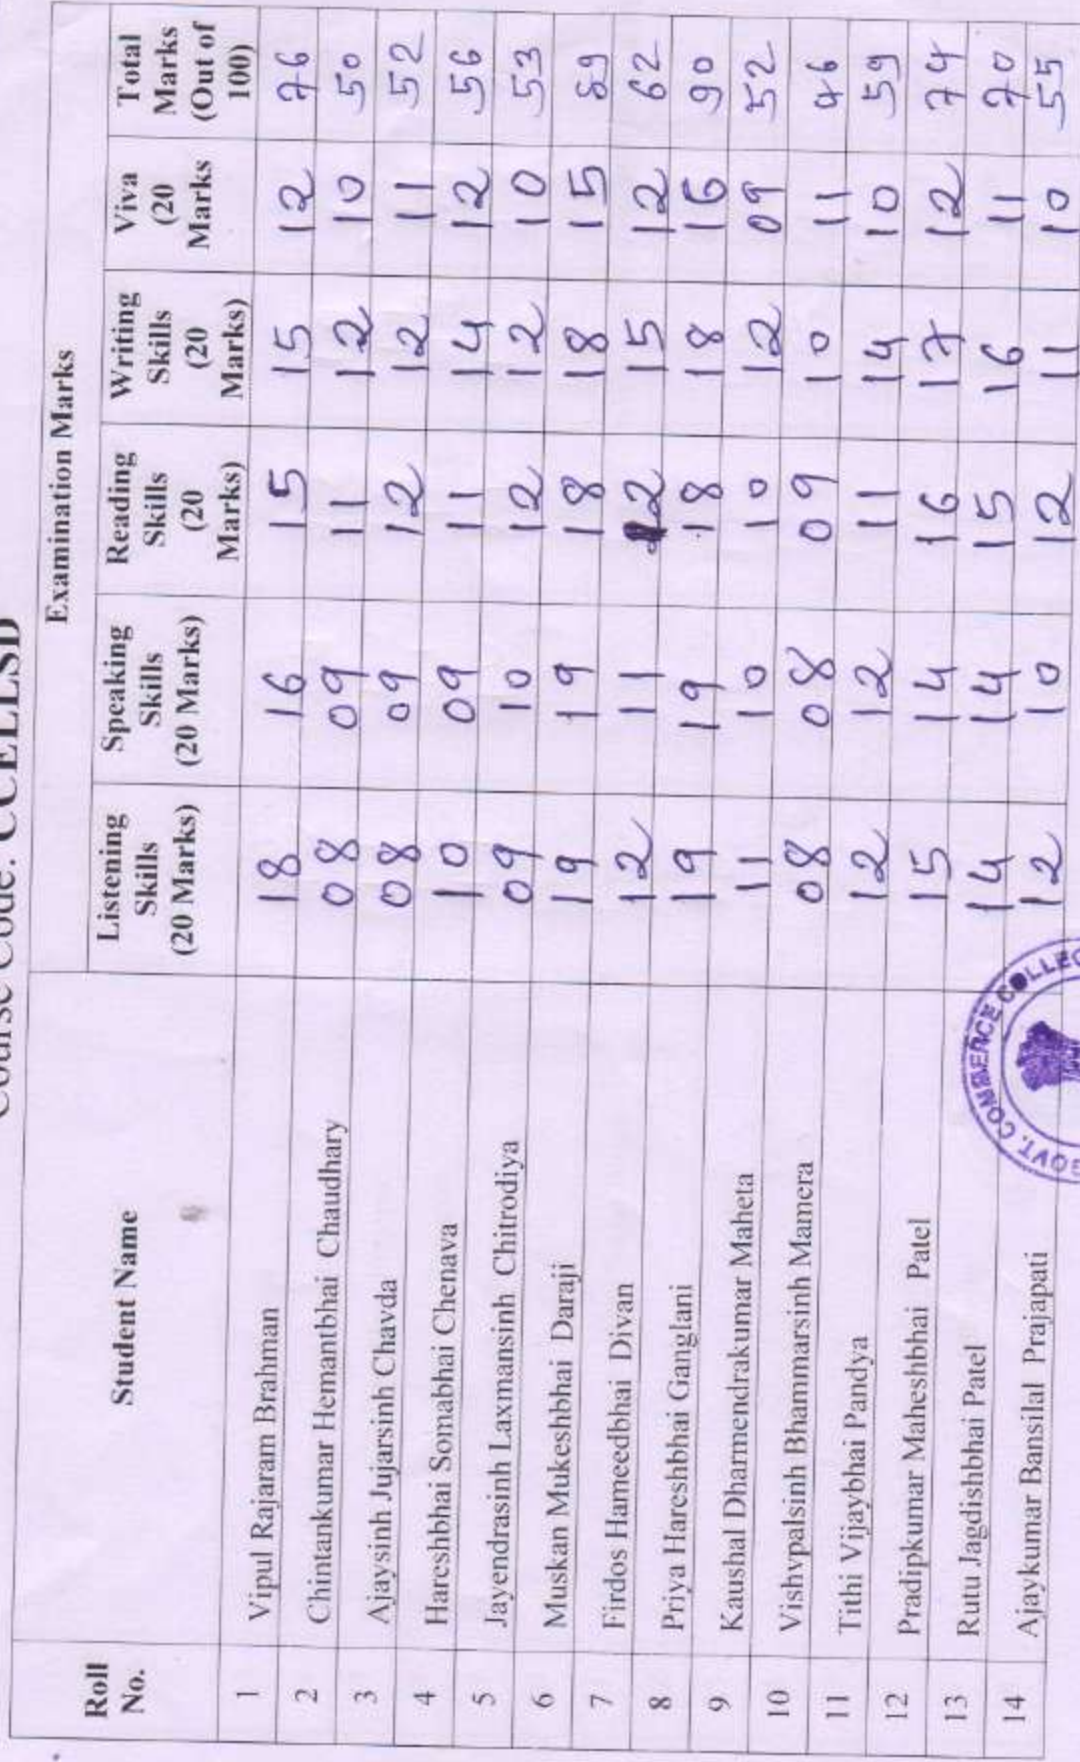 Course Code: CCELLSD
Roll No. | Student Name | Examination Marks
Listening Skills (20 Marks) | Speaking Skills (20 Marks) | Reading Skills (20 Marks) | Writing Skills (20 Marks) | Viva (20 Marks | Total Marks (Out of 100)
1 Vipul Rajaram Brahman 18 16 15 15 12 76
2 Chintankumar Hemantbhai Chaudhary 08 09 11 12 10 50
3 Ajaysinh Jujarsinh Chavda 08 09 12 12 11 52
4 Hareshbhai Somabhai Chenava 10 09 11 14 12 56
5 Jayendrasinh Laxmansinh Chitrodiya 09 10 12 12 10 53
6 Muskan Mukeshbhai Daraji 19 19 18 18 15 89
7 Firdos Hameedbhai Divan 12 11 12 15 12 62
8 Priya Hareshbhai Ganglani 19 19 18 18 16 90
9 Kaushal Dharmendrakumar Maheta 11 10 10 12 09 52
10 Vishvpalsinh Bhammarsinh Mamera 08 08 09 10 11 46
11 Tithi Vijaybhai Pandya 12 12 11 14 10 59
12 Pradipkumar Maheshbhai Patel 15 14 16 17 12 74
13 Rutu Jagdishbhai Patel 14 14 15 16 11 70
14 Ajaykumar Bansilal Prajapati 12 10 12 11 10 55
GOVT. COMMERCE COLLEG